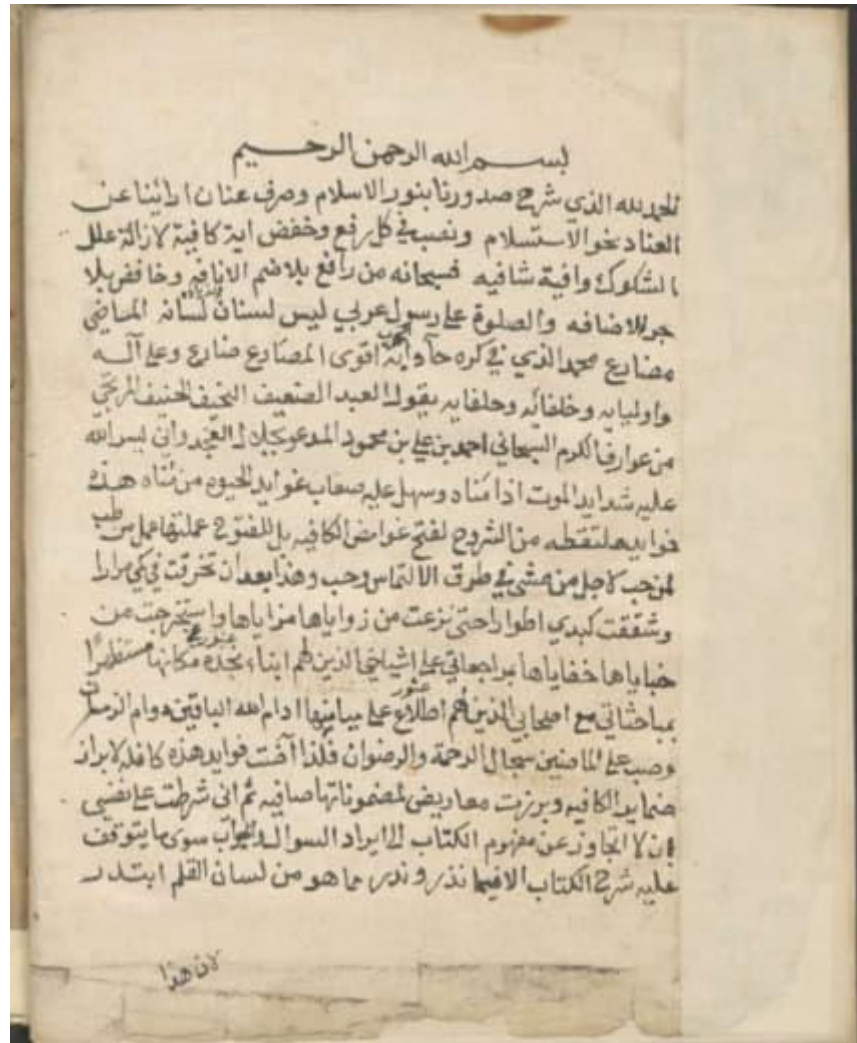 بسم الله الرحمن الرحيم
الحمد لله الذي شرح صدورنا بنور الاسلام وصرف عنان ارائنا عن
العناد نحو الاستسلام ونصب في كل رفع وخفض اية كافية لازالة علل
الشكوك وافية شافيه فسبحانه من رافع بلا ضم الانافيه وخافض بلا
جر الاضافه والصلوة على رسول عربي ليس لسنان لسانه الماضي
مضارع محمد الذي في كره اقوى المصارع صارع وعلى آله
واوليايه وخلفائه وحلفايه يقول العبد الضعيف النحيف الحنيف المرتجي
من عوارف الكرم السبحاني احمد بن علي بن محمود المدعو بجلال الغجدواني يسر الله
عليه شدايد الموت اذا فناه وسهل عليه صعاب عوايد الحيوه من هذه
فوايد ملتقطه من الشروح لفتح غوامض الكافيه بل للفتوح عملتها عمل من طب
لمن حب لاجل من مشى في طرق الالتماس وحب وهذا بعد ان تخرقت في كي مرارا
وشققت كبدي اطوارا حتى نزعت من زواياها مزاياها واستخرجت من
خباياها خفاياها مراجعاتي على اشياخي الذين لهم ابناء بجدة مكانها مستظهرا
بمباحثاتي مع اصحابي الذين لهم اطلاع عثور على مبانيها ادام الله الباقين دوام الزمان
وصب على الماضين سجال الرحمة والرضوان فلذا آضت فوايد هذه كافله لابراز
ضماير الكافيه وبرزت معاريض لمضموناتها صافيه ثم انى شرطت على نفسي
ان لا اتجاوز عن مفهوم الكتاب الى ايراد السوال والجواب سوى ما يتوقف
عليه شرح الكتاب الا فيما نذر وندر مما هو من لسان القلم ابتدر
لان هذا